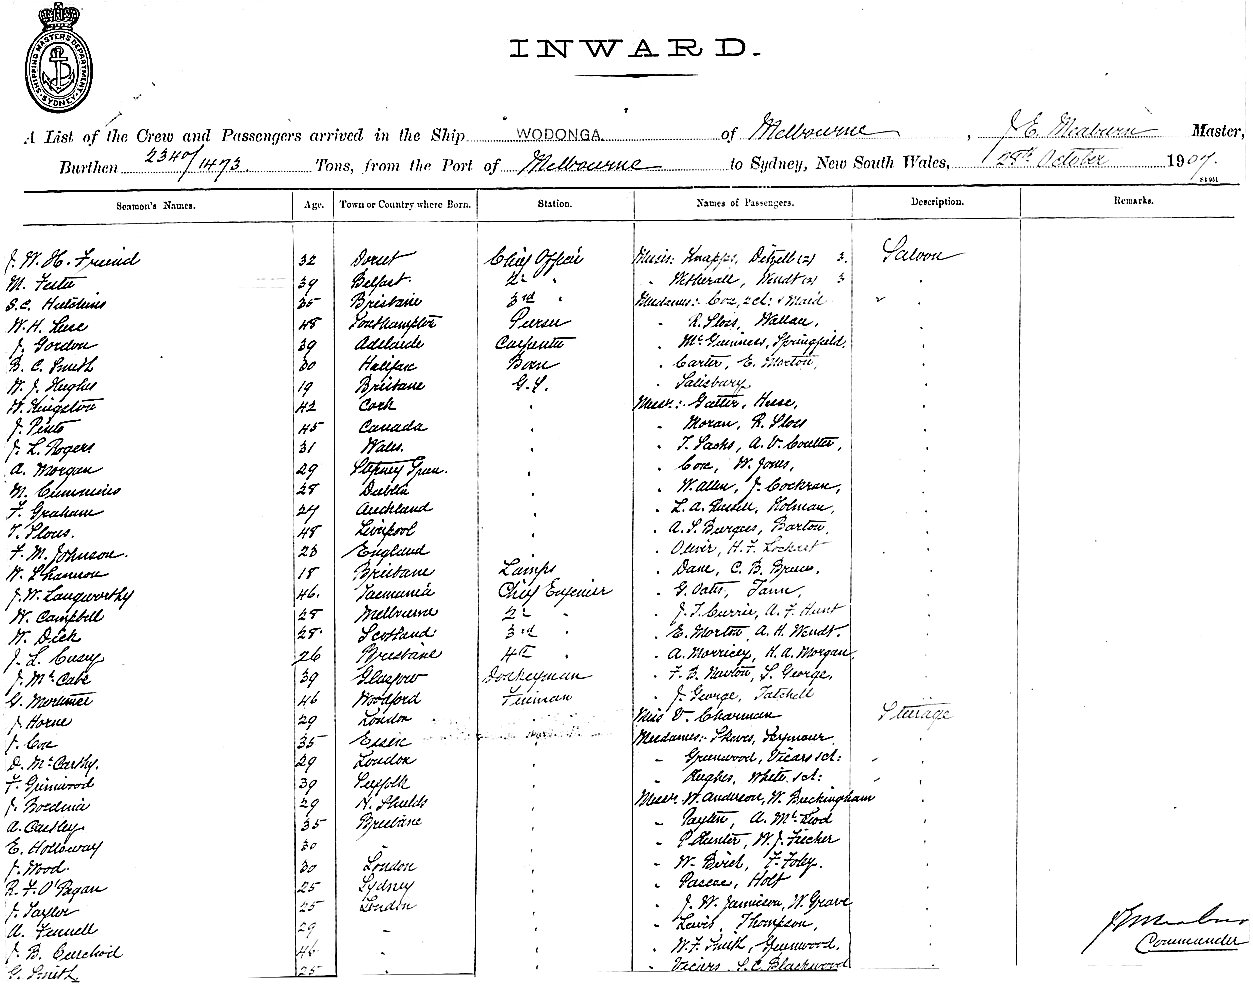 SHIPPING MASTERS DEPARTMENT SYDNEY
INWARD.
A List of the Crew and Passengers arrived in the Ship WODONGA of Melbourne, J E. Meaburn Master,
Burthen 2340/1473 Tons, from the Port of Melbourne to Sydney, New South Wales, 28th October 1907.
Seamen's Names. Age. Town or Country where Born. Station. Names of Passengers. Description. Remarks.
J. W. H. Friend 32 Dorset Chief Officer Misses Knapps, Ditzell (2) 3 Saloon
M. 39 Belfast 2 " " Wetherall, Wendt (2) 3
S. C. Hutchins 35 Brisbane 3rd " Mesdames: Cox, 2 ch: & Maid
W. H. 48 Southampton " R. Sloss, Wallan,
J. Gordon 39 Adelaide Carpenter " McGuinness, Springfield,
B. C. Smith 30 Halifax " Carter, E. Morton,
W. J. Hughes 19 Brisbane G. S. " Salisbury,
W. Kingston 42 Cork Messrs: Gatter, Hesse,
J. Pento 45 Canada " Moran, R. Sloss
J. L. Rogers 31 Wales. " T. Sachs, A. V. Coulter,
A. Morgan 29 " Cox, W. Jones,
M. Cummins 28 Dublin " Wallen, J. Cockran,
F. Graham 24 Auckland " L. A. Russell, Holman,
T. Slous. 48 Liverpool " A. S. Burges, Barton,
F. M. Johnson. 23 England " Oliver, H. F. Lockart
W. Shannon 18 Brisbane Lamps " Dane, C. B. Brews,
J. W. Langworthy 46. Tasmania Chief Engineer " G. Oates, Tann,
W. Campbell 28 Melbourne 2 " " J. T. Currie, A. F. Hunt
W. Dick 28 Scotland 3rd " " E. Morton, A. H. Wendt.
J. L. Cusey 26 Brisbane 4th " " A. Morricey, K. A. Morgan,
J. McCabe 39 Glasgow Donkeyman " F. B. Newton, S. George,
G. Mortimer 46 Woodford Fireman " J. George, Tatchell
J. Horne 29 London Miss V. Charman Steerage
J. Cox 35 Essex Mesdames: Shaves, Seymour,
D. McCarthy. 29 London " Greenwood, Vicars 1 ch:
F. Grimwood 39 Suffolk " Hughes, White, 1 ch:
J. 29 N. Shields Messrs W. Anderson, W. Buckingham
A. Castley 35 Brisbane " A. McLeod
E. Holloway 30 " " P. Hunter, W. J. Fischer
J. Wood. 30 London " W. Birch, F. Foley.
R. F. O'Pagan 25 Sydney " Pascoe, Holt
J. Taylor 25 London " J. W. Jamieson, W. Grave
A. Fennell 29 " " Lewis, Thompson,
J. B. 46 " " W. F. Smith, Greenwood,
G. Smith 25 " " Vicars, S. C. Blackwood
Commander